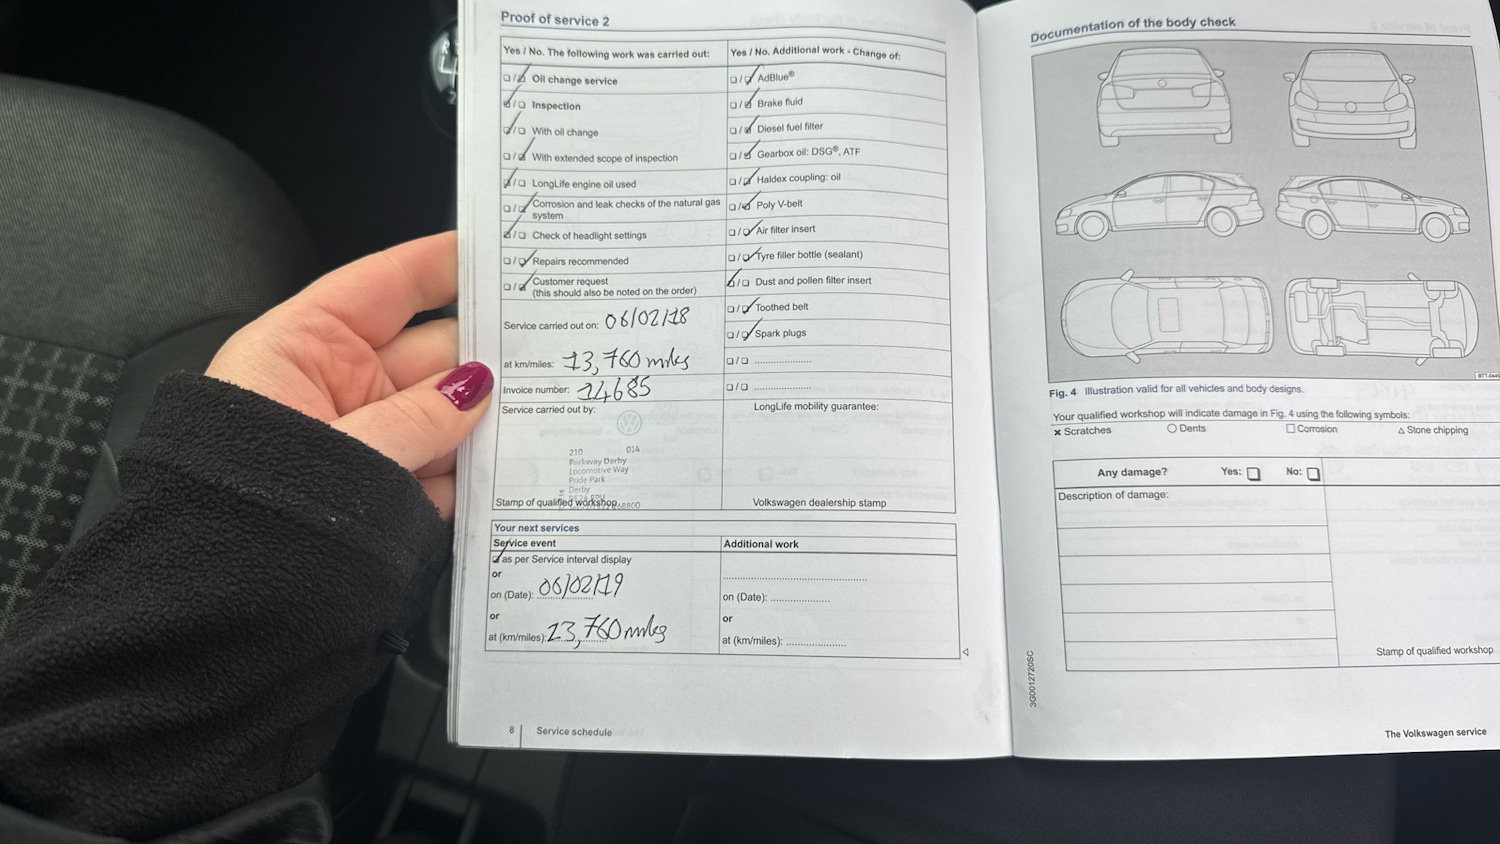 Proof of service 2
Yes / No. The following work was carried out:
Oil change service
Inspection
With oil change
With extended scope of inspection
LongLife engine oil used
Corrosion and leak checks of the natural gas
system
Check of headlight settings
Repairs recommended
Customer request
(this should also be noted on the order)
Service carried out on: 06/02/18
at km/miles: 13,760 miles
Invoice number: 14685
Service carried out by:
210 014
Parkway Derby
Locomotive Way
Pride Park
Derby
Stamp of qualified workshop
Yes / No. Additional work - Change of:
AdBlue®
Brake fluid
Diesel fuel filter
Gearbox oil: DSG®, ATF
Haldex coupling: oil
Poly V-belt
Air filter insert
Tyre filler bottle (sealant)
Dust and pollen filter insert
Toothed belt
Spark plugs
LongLife mobility guarantee:
Volkswagen dealership stamp
Your next services
Service event
as per Service interval display
or
on (Date): 06/02/19
or
at (km/miles): 23,760 miles
Additional work
on (Date):
or
at (km/miles):
8 Service schedule
Documentation of the body check
Fig. 4 Illustration valid for all vehicles and body designs.
Your qualified workshop will indicate damage in Fig. 4 using the following symbols:
× Scratches ○ Dents □ Corrosion △ Stone chipping
Any damage? Yes: □ No: □
Description of damage:
Stamp of qualified workshop
3G0012720SC
The Volkswagen service